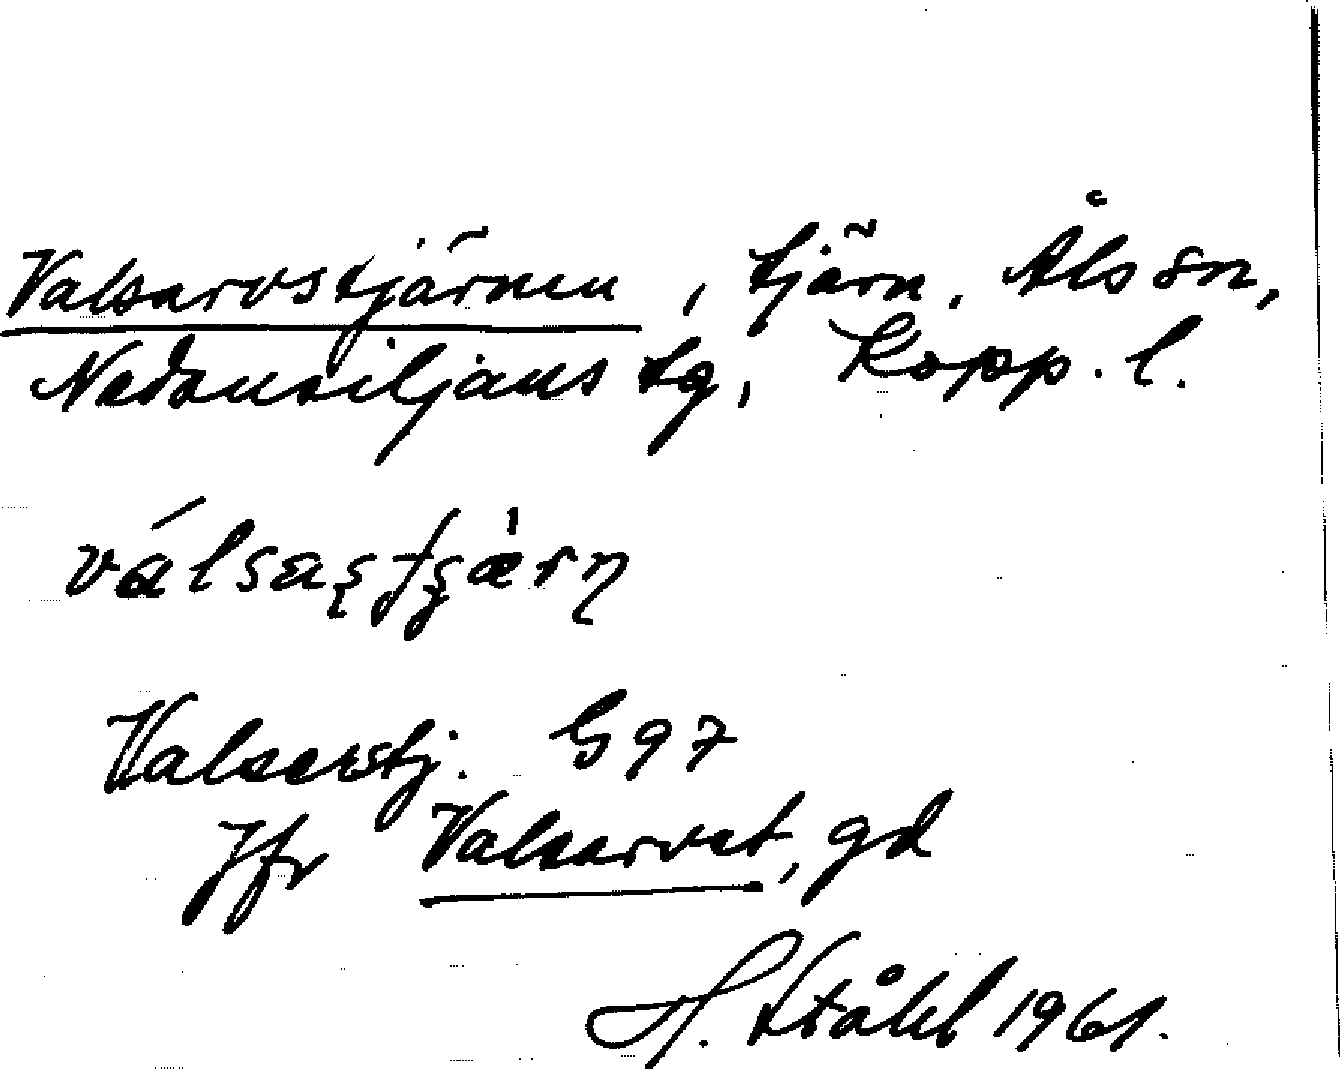 Valsarvstjärnen, tjärn, Ål sn,
Nedansiljans tg, Kopp. l.
Valsarvstj. G97
Jfr Valsarvet, gd
H. Ståhl 1961.